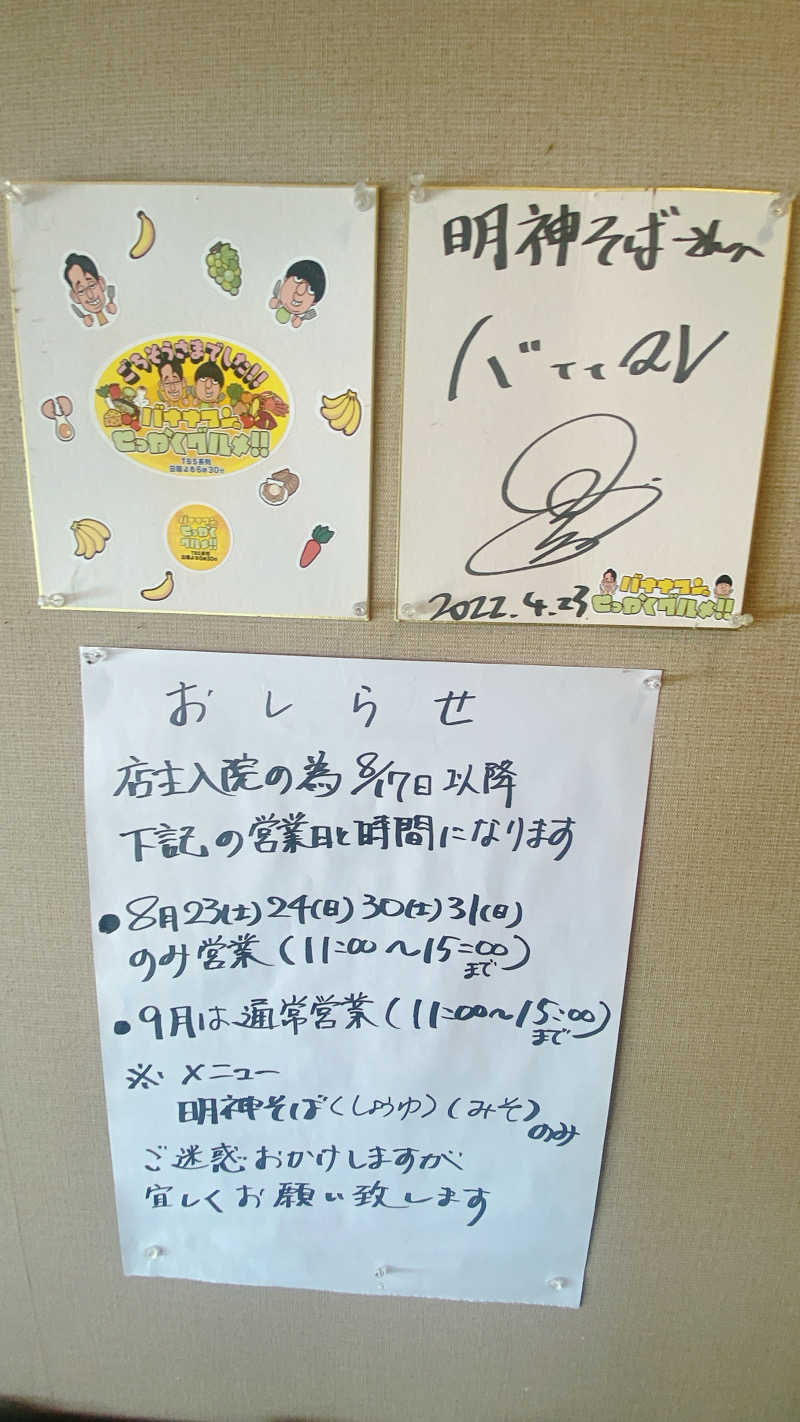 ごちそうさまでした!!
バナナマンの
せっかくグルメ!!
TBS系列
日曜よる6時30分
バナナマンの
せっかく
グルメ!!
TBS系列
日曜よる6時30分
明神そばさんへ
2022.4.23
バナナマンの
せっかくグルメ!!
おしらせ
店主入院の為 8/17日以降
下記の営業日と時間になります
●8月23(土)24(日)30(土)31(日)
のみ営業(11:00〜15:00)
まで
●9月は通常営業(11:00〜15:00)
まで
※ メニュー
明神そば(しょうゆ)(みそ)
のみ
ご迷惑おかけしますが
宜しくお願い致します